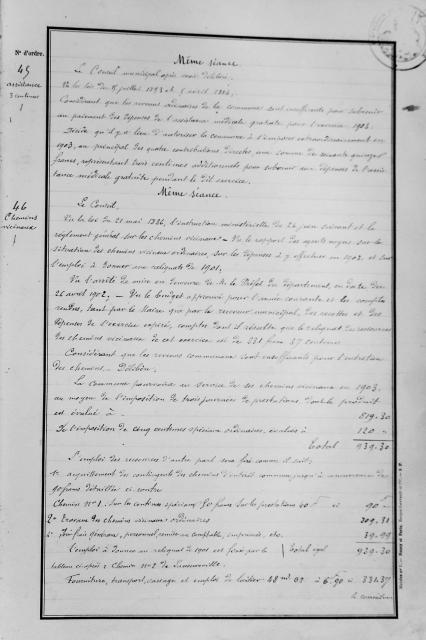 N° d'ordre.
Même séance.
45
assistance
3 centimes
Le Conseil municipal après avoir délibéré.
Vu les lois des 15 juillet 1893 et avril
Considérant que les revenus ordinaires de la commune sont insuffisants pour subvenir
au paiement des dépenses de l'assistance médicale gratuite pour l'exercice
Décide qu'il y a lieu d'autoriser la commune à s'imposer extraordinairement en
1903, au principal des quatre contributions directes, une somme de soixante quinze
francs, représentant trois centimes additionnels pour subvenir aux dépenses de l'assis-
tance médicale gratuite pendant le dit exercice.
Même séance.
46
Chemins
vicinaux
Le Conseil.
Vu la loi du 21 mai l'instruction ministérielle du 24 juin suivant et le
règlement général sur les chemins vicinaux - Vu le rapport des agents voyers sur la
situation des chemins vicinaux ordinaires, sur les dépenses à y effectuer en 1902 et sur
l'emploi à donner au reliquat de 1901,
Vu l'arrêté de mise en demeure de M. le Préfet du département, en date du
26 avril 1902, - Vu le budget approuvé pour l'année courante et les comptes
rendus, tant par le Maire que par le receveur municipal, des recettes et des
dépenses de l'exercice expiré, comptes dont il résulte que le reliquat des ressources
des chemins vicinaux de cet exercice est de 331 francs 37 centimes
Considérant que les revenus communaux sont insuffisants pour l'entretien
des chemins. - Délibère.
La commune pourvoira au service de ses chemins vicinaux en 1903,
au moyen de l'imposition de trois journées de prestations, dont le produit
est évalué à 819.30
De l'imposition de cinq centimes spéciaux ordinaires, évalués à 120 "
Total 939.30
L'emploi des ressources d'autre part sera fait comme il suit:
1° acquittement du contingent des chemins d'intérêt commun jusqu'à concurrence de
90 francs détaillés ci contre
Chemin N° 1. Sur les centimes spéciaux 50 francs Sur les prestations 40 f ci 90 "
2° Travaux des chemins vicinaux ordinaires 809.31
Frais généraux, personnel, remises au comptable, imprimés, etc. 39.99
L'emploi à donner au reliquat de 1901 est fixé par le Total égal 939.30
tableau ci après: Chemin N° 2 de
Fourniture, transport, cassage et emploi de 48 m 09 à 6.90 331.37